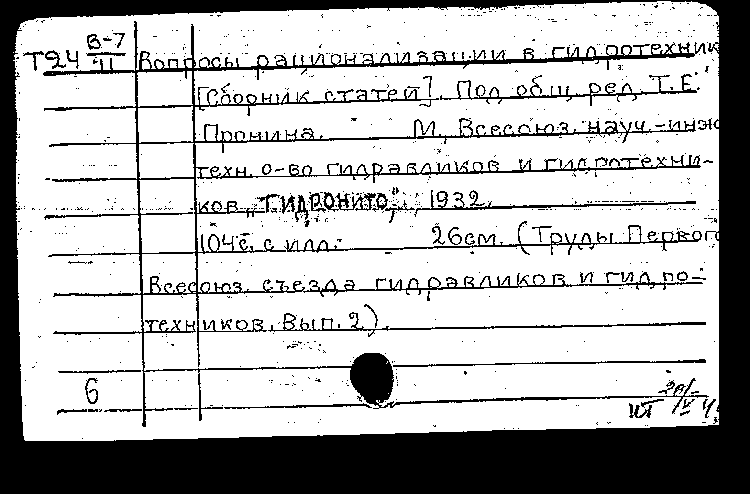 Т24 В-7/11 Вопросы рационализации в гидротехник
[Сборник статей]. Под общ. ред. Т. Е.
Пронина. М., Всесоюз. науч.-инж
техн. о-во гидравликов и гидротехни-
ков „ГИДРОНИТО“, 1932.
104с. с илл. 26см. (Труды Первого
Всесоюз. съезда гидравликов и гидро-
техников. Вып. 2).
6